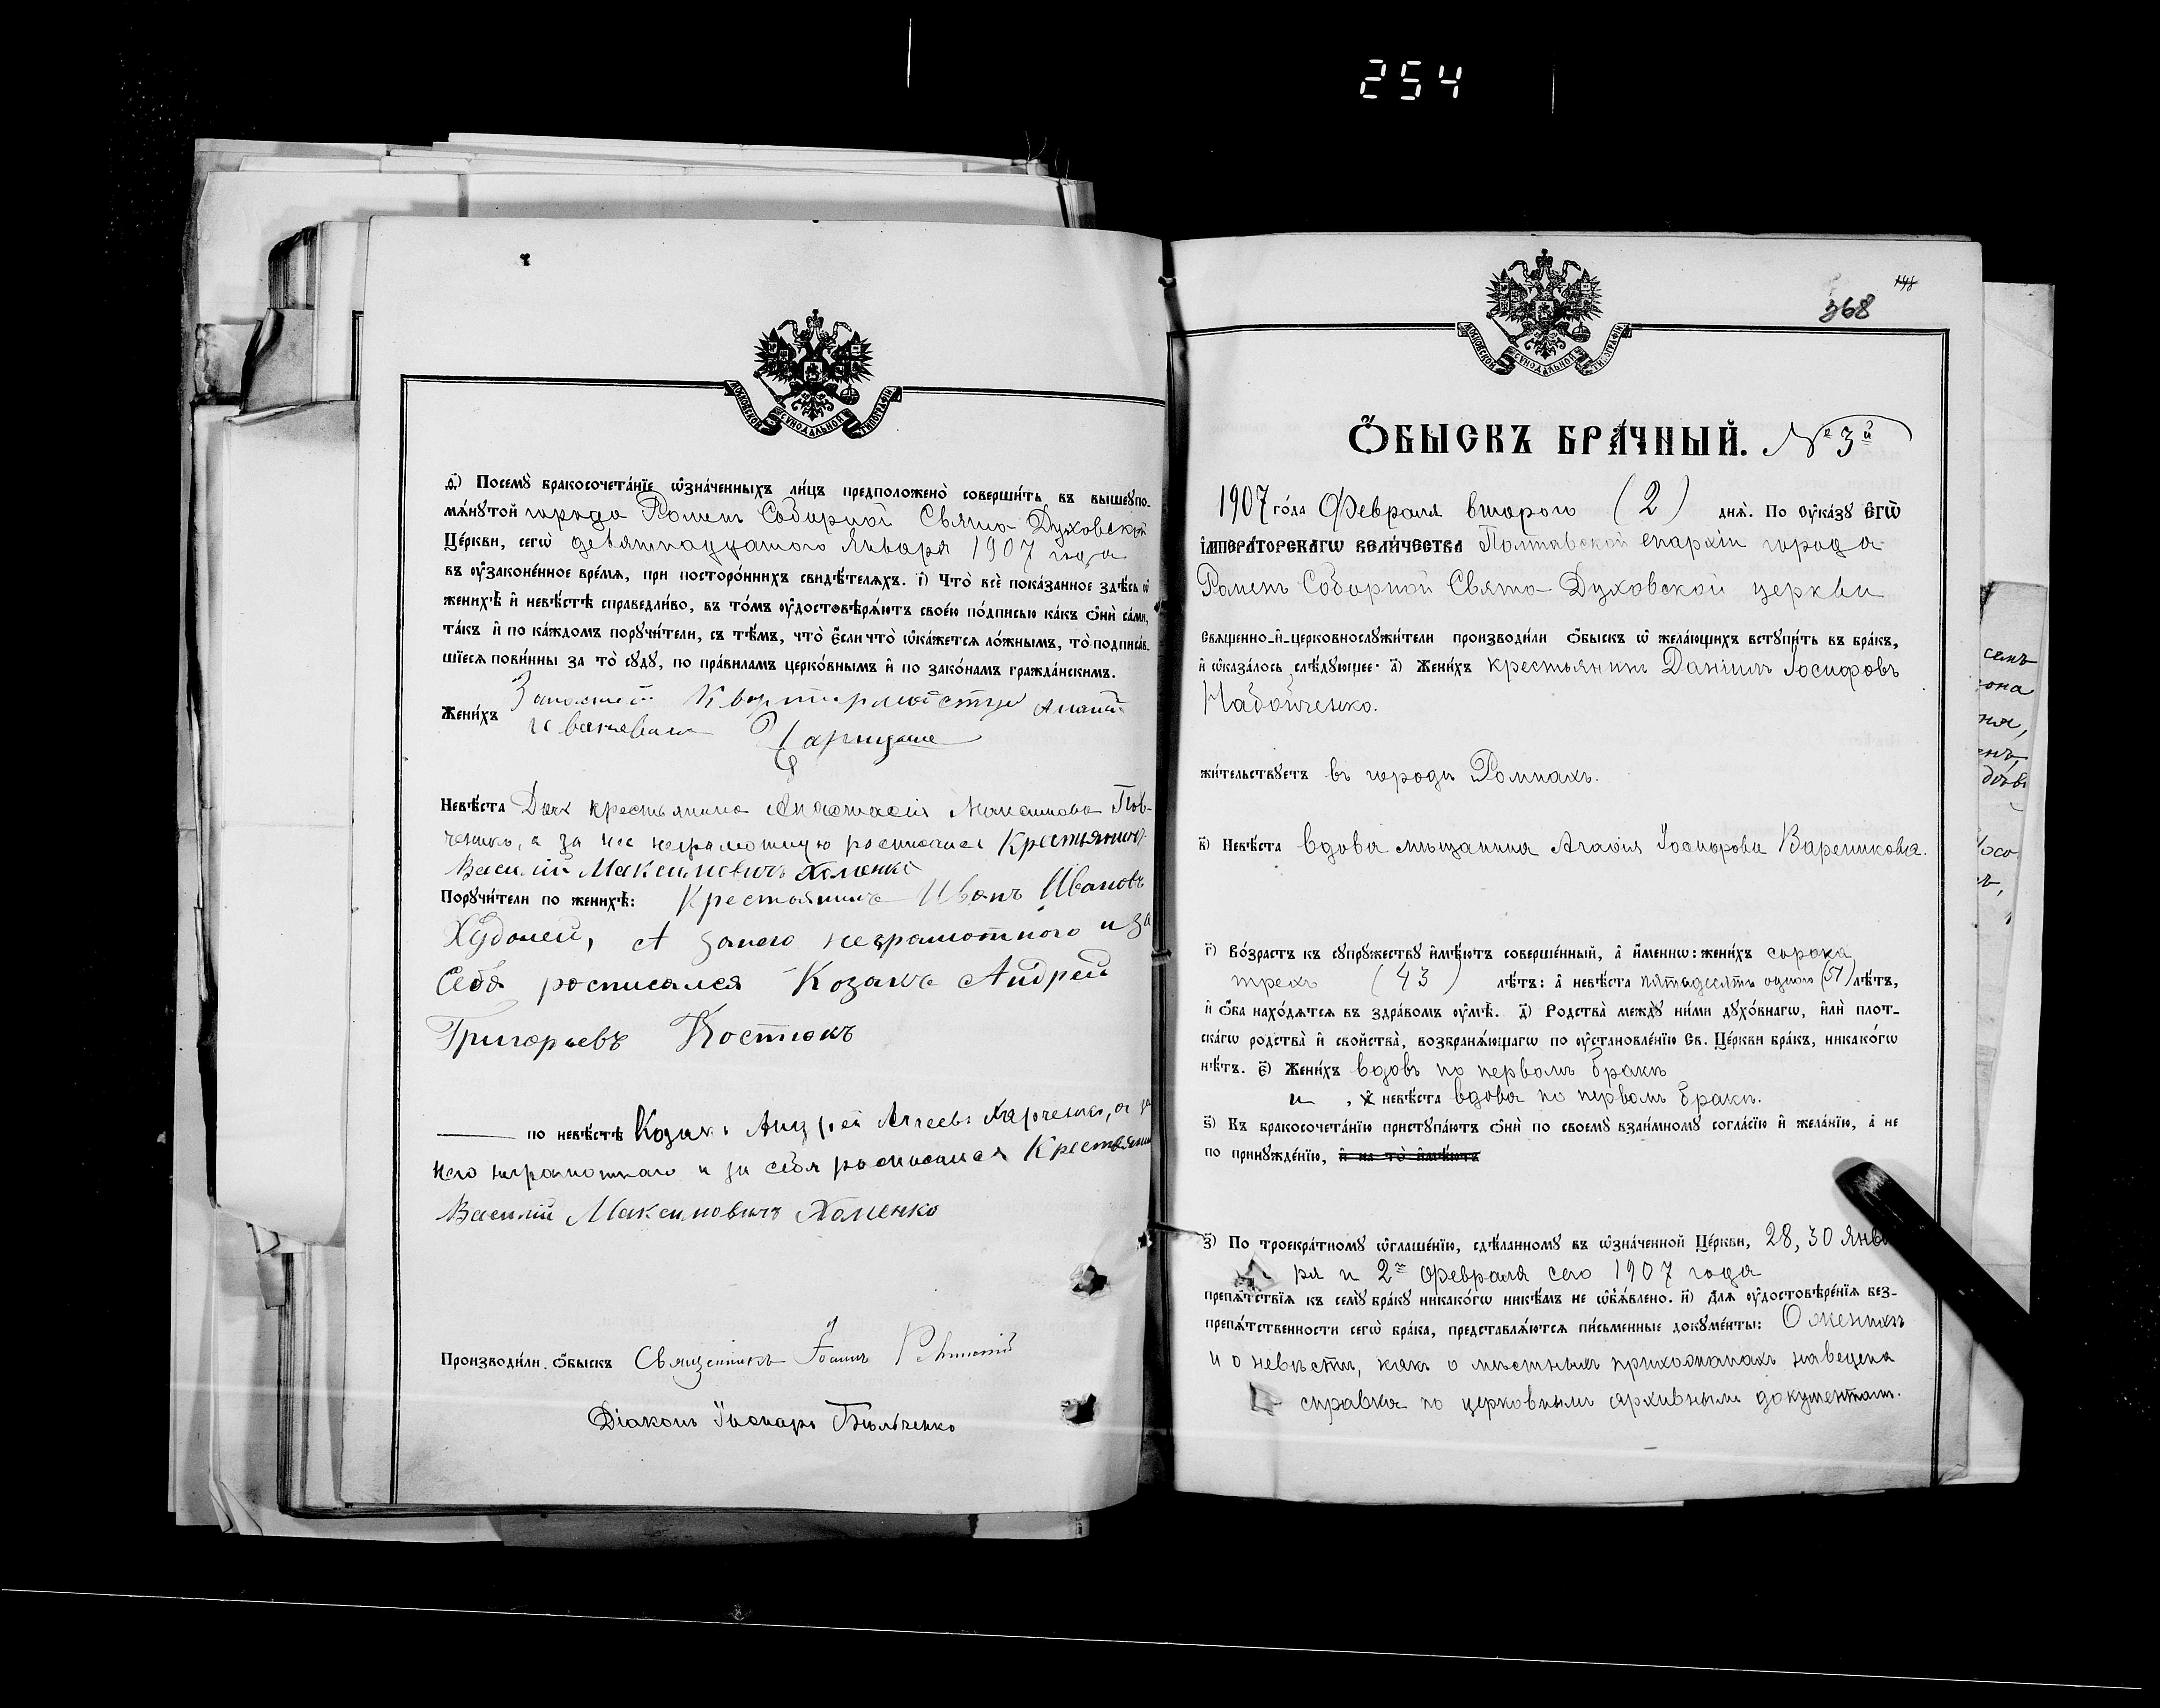 254
МОСКОВСКОЙ СѴНОДАЛЬНОЙ ТИПОГРАФІИ
д҃) Посемꙋ бракосочета́нїе ѡ҆зна́ченныхъ ли́цъ предположено̀ соверши́ть въ вышеꙋпо-
мѧ́нꙋтой города Ромен Соборной Свято Духовской
Це́ркви, сегѡ̀ девятнадцатого Января 1907 года
въ ᲂу҆зако́ненное вре́мѧ, при посторо́ннихъ свидѣ́телѧхъ. і҃) Что̀ всѐ пока́занное здѣ́сь ѡ҆
женихѣ̀ и҆ невѣ́стѣ справедли́во, въ то́мъ ᲂу҆достовѣрѧ́ютъ свое́ю по́дписью ка́къ ѻ҆нѝ са́ми,
та́къ и҆ по ка́ждомъ порꙋчи́тели, съ тѣ́мъ, что̀ є҆́сли что̀ ѡ҆ка́жетсѧ ло́жнымъ, то̀ подписа́в-
шїесѧ пови́нны за то̀ сꙋдꙋ̀, по пра́виламъ церко́внымъ и҆ по зако́намъ гражда́нскимъ.
Жени́хъ Запасной Квартирмейстер
Невѣ́ста Дочь крестьянина Анастасія Максимова Пов-
ченко, а за нее неграмотную росписался Крестьянинъ
Василій Максимовичъ Хоменко
Порꙋчи́тели по женихѣ̀: Крестьянинъ Иванъ Ивановъ
Худолей, А занего неграмотного и за
Себя росписался Козакъ Андрей
Григорьевъ Костюкъ
по невѣ́стѣ Козакъ Андрей Агеевъ Харченко, а за
него неграмотнаго и за себя росписался Крестьянинъ
Василій Максимовичъ Хоменко
Производи́ли ѻ҆́быскъ Священникъ Іоаннъ
Діаконъ Бѣльченко
368
МОСКОВСКОЙ СѴНОДАЛЬНОЙ ТИПОГРАФІИ
Ѻ҆́БЫСКЪ БРА́ЧНЫЙ. № 3й
1907 го́да Февраля второго (2) днѧ̀. По ᲂу҆ка́зꙋ є҆гѡ̀
і҆мпера́торскагѡ вели́чества Полтавской епархіи города
Ромен Соборной Свято-Духовской церкви
Свѧще́нно-и҆-церковнослꙋжи́тели производи́ли ѻ҆́быскъ ѡ҆ жела́ющихъ встꙋпи́ть въ бра́къ,
и҆ ѡ҆каза́лось слѣ́дꙋющее: а҃) Жени́хъ крестьянинъ Даніилъ Іосифовъ
Набойченко.
жи́тельствꙋетъ въ городѣ Ромнахъ.
в҃) Невѣ́ста вдова мѣщанина Агафія Іосифова Вареникова.
г҃) Во́зрастъ къ сꙋпрꙋ́жествꙋ и҆мѣ́ютъ соверше́нный, а҆ и҆́меннѡ: жени́хъ сорока
трехъ (43) лѣ́тъ: а҆ невѣ́ста пятьдесятъ одного (51) лѣ́тъ,
и҆ ѻ҆́ба нахо́дѧтсѧ въ здра́вомъ ᲂу҆мѣ̀. д҃) Родства̀ междꙋ̀ ни́ми дꙋхо́внагѡ, и҆лѝ пло́т-
скагѡ родства̀ и҆ сво́йства, возбранѧ́ющагѡ по ᲂу҆становле́нїю Св. Це́ркви бра́къ, никако́гѡ
нѣ́тъ. є҃) Жени́хъ вдовъ по первомъ бракѣ
и , а҆ невѣ́ста вдова по первомъ бракѣ.
ѕ҃) Къ бракосочета́нїю пристꙋпа́ютъ ѻ҆нѝ по своемꙋ̀ взаи́мномꙋ согла́сїю и҆ жела́нїю, а҆ не
по принꙋжде́нїю, и҆ на то̀ и҆мѣ́ютъ
з҃) По троекра́тномꙋ ѡ҆глаше́нїю, сдѣ́ланномꙋ въ ѡ҆зна́ченной Це́ркви, 28, 30 Янва-
ря и 2го Февраля сего 1907 года
препѧ́тствїѧ къ семꙋ̀ бра́кꙋ никако́гѡ никѣ́мъ не ѡ҆б̾ѧ́влено. и҃) Длѧ̀ ᲂу҆достовѣре́нїѧ без-
препѧ́тственности сегѡ̀ бра́ка, представлѧ́ютсѧ пи́сьменные докꙋме́нты: О женихѣ
и о невѣстѣ, какъ о мѣстныхъ прихожанахъ наведена
справка по церковнымъ архивнымъ документамъ.